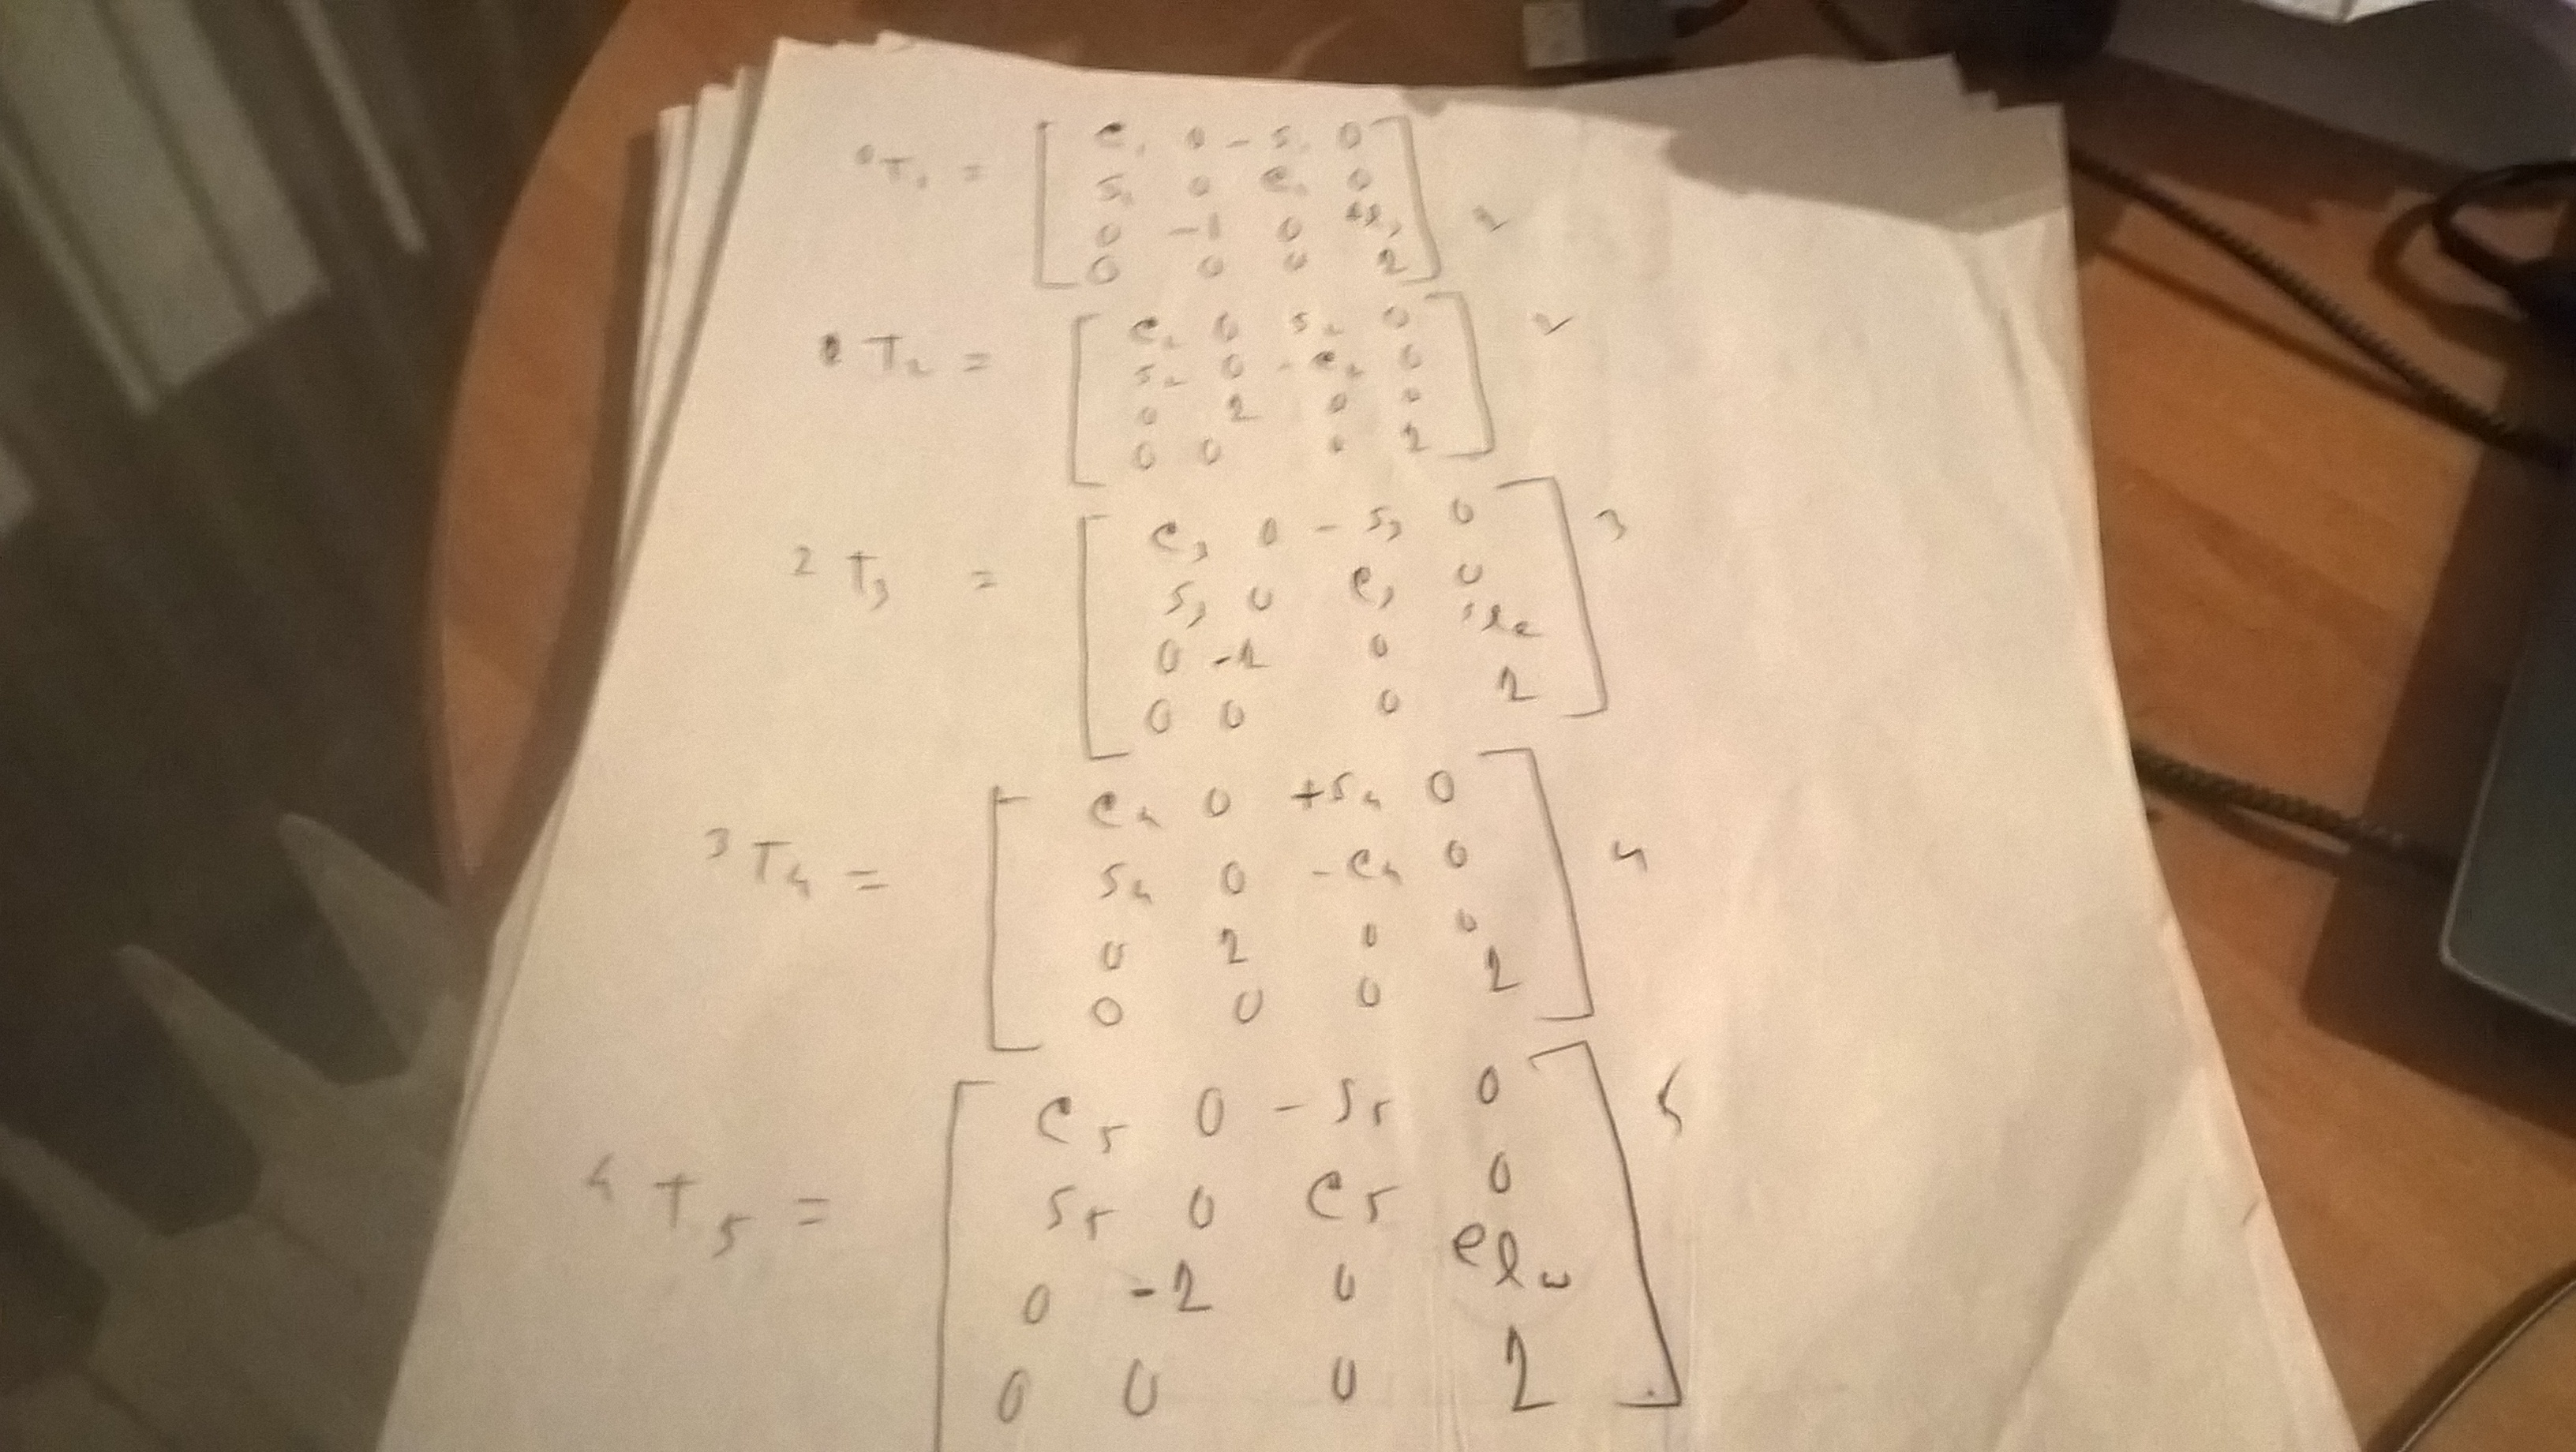 ⁰T₁ = [ c₁ 0 - s₁ 0 ] 1
s₁ 0 c₁ 0
0 -1 0 +l₁
0 0 0 1
T₂ = [ c₂ 0 s₂ 0 ] 2
s₂ 0 - c₂ 0
0 1 0 0
0 0 0 1
²T₃ = [ c₃ 0 - s₃ 0 ] 3
s₃ 0 c₃ 0
0 -1 0 l₂
0 0 0 1
³T₄ = [ c₄ 0 +s₄ 0 ] 4
s₄ 0 -c₄ 0
0 1 0 0
0 0 0 1
⁴T₅ = [ c₅ 0 - s₅ 0 ] 5
s₅ 0 c₅ 0
0 -1 0
0 0 0 1